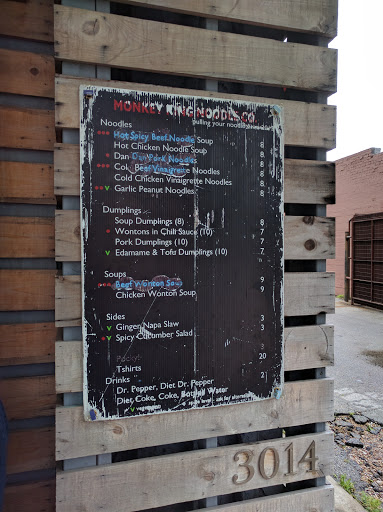 MONKEY KING NOODLE CO.
pulling your noodle since
Noodles
*** Hot Spicy Beef Noodle Soup 8
Hot Chicken Noodle Soup 8
* Dan Dan Pork Noodles 8
*** Cold Beef Vinaigrette Noodles 8
Cold Chicken Vinaigrette Noodles 8
**v Garlic Peanut Noodles 8
Dumplings
Soup Dumplings (8) 8
* Wontons in Chili Sauce (10) 7
Pork Dumplings (10) 7
v Edamame & Tofu Dumplings (10) 7
Soups
*** Beef Wonton Soup 9
Chicken Wonton Soup 9
Sides
v Ginger Napa Slaw 3
*v Spicy Cucumber Salad 3
Pocky 3
Tshirts 20
Drinks
Dr. Pepper, Diet Dr. Pepper 2
Diet Coke, Coke, Bottled Water
v = vegetarian * = spice level - ask for alternatives
3014